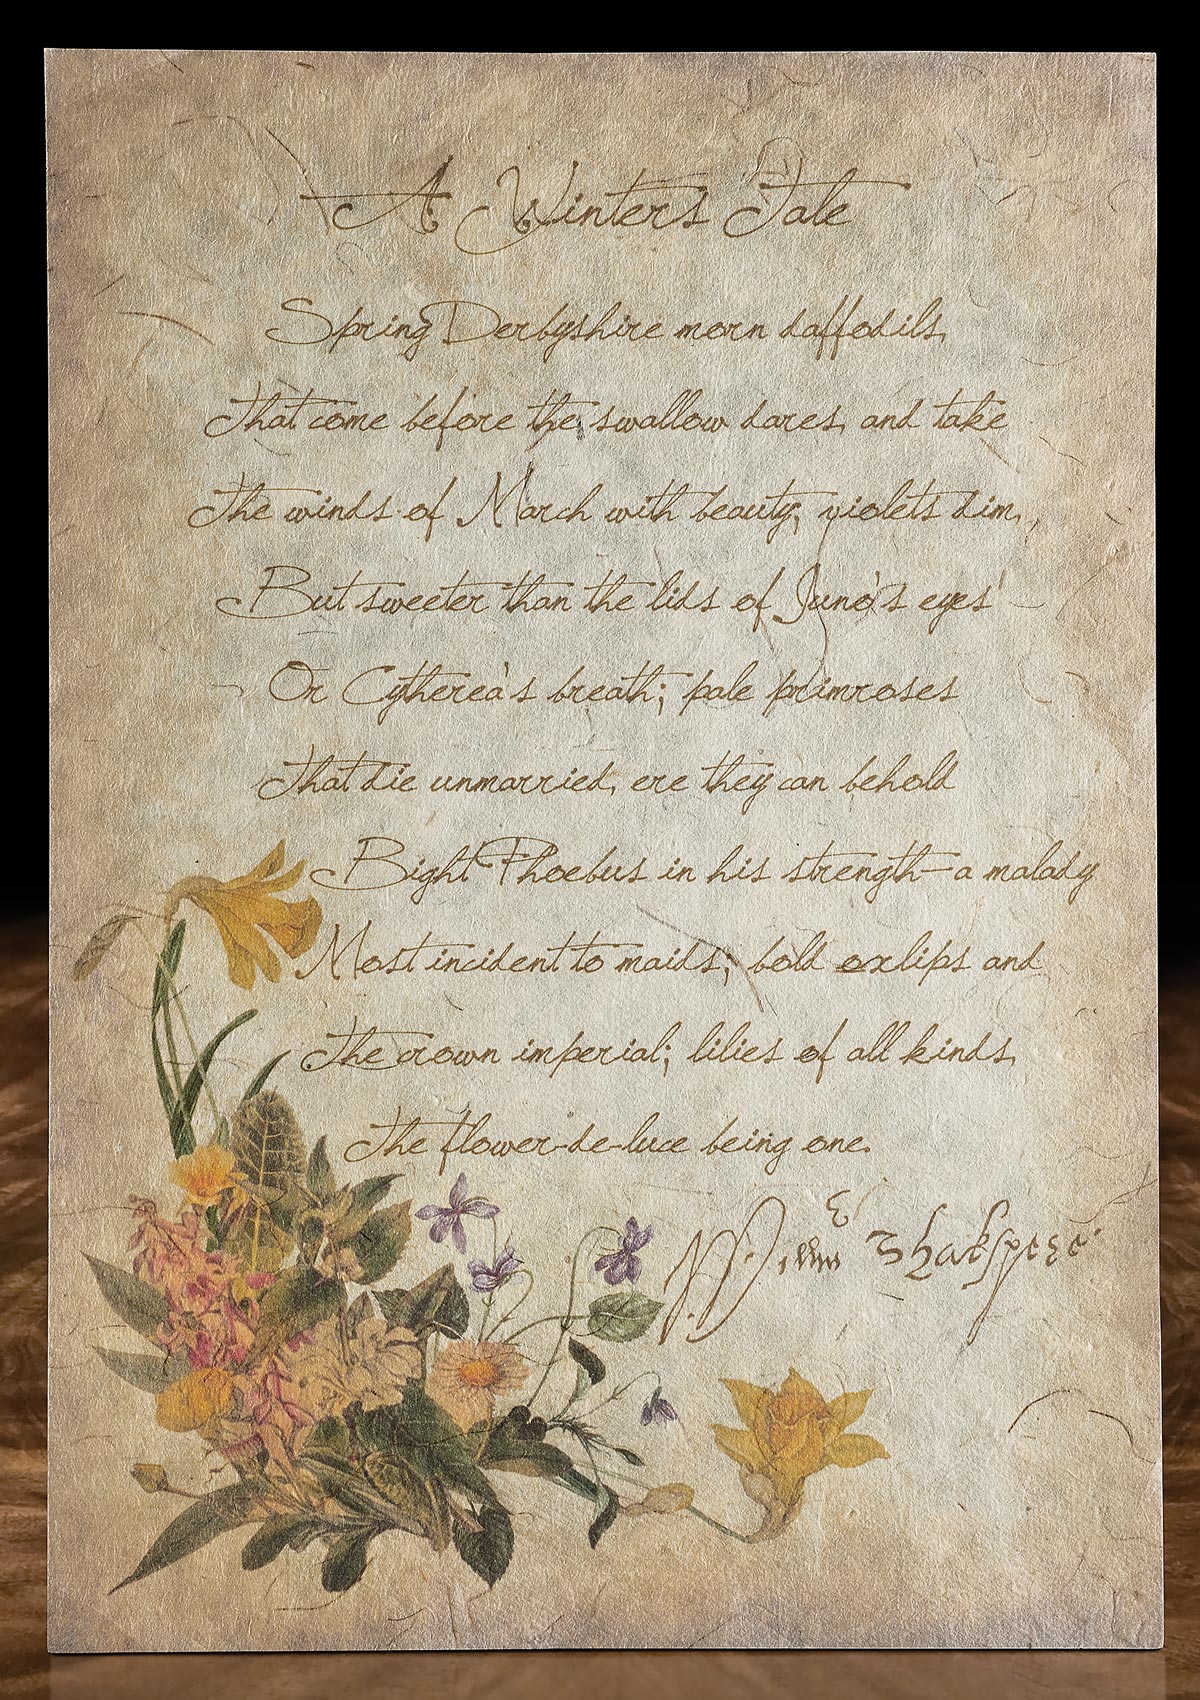 A Winters Tale
Spring Derbyshire morn daffodils,
That come before the swallow dares, and take
The winds of March with beauty; violets dim,
But sweeter than the lids of Juno's eyes
Or Cytherea's breath; pale primroses
That die unmarried, ere they can behold
Bight Phoebus in his strength—a malady
Most incident to maids; bold oxlips and
The crown imperial; lilies of all kinds,
The flower-de-luce being one.
Willm Shakspere